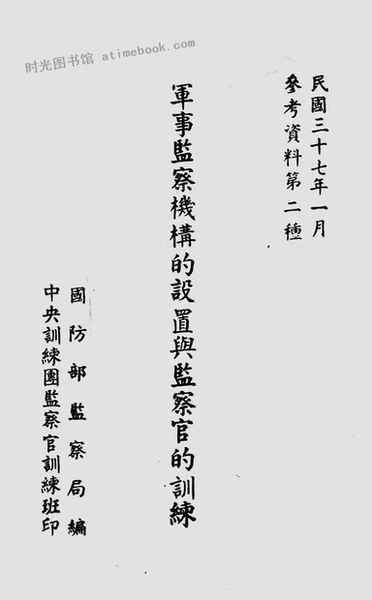 时光图书馆 atimebook.com
民國三十七年一月
參考資料第二種
軍事監察機構的設置與監察官的訓練
國防部監察局編
中央訓練團監察官訓練班印